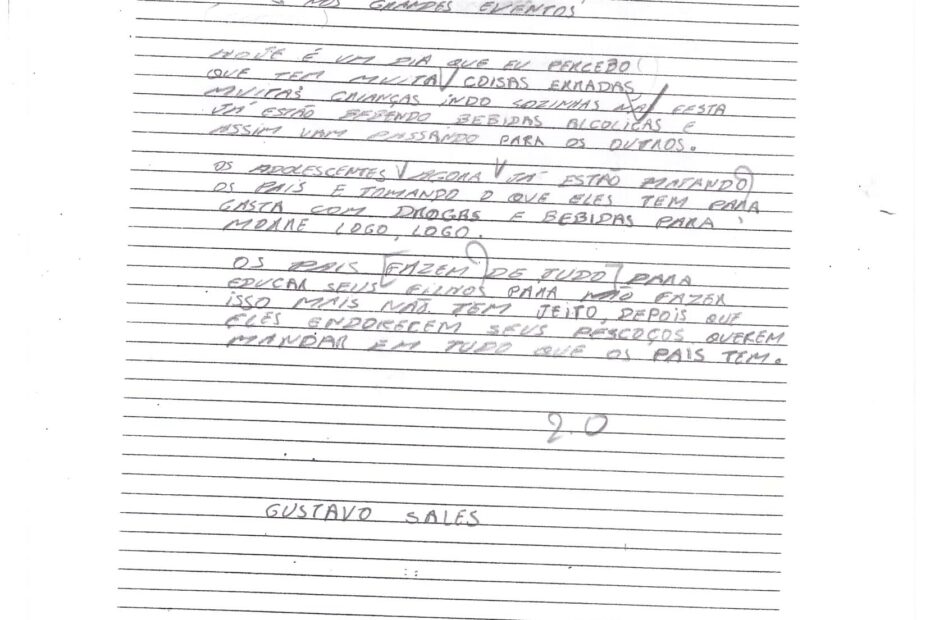 NOS GRANDES EVENTOS
HOJE É UM DIA QUE EU PERCEBO
QUE TEM MUITA COISAS ERRADAS
MUITAS CRIANÇAS INDO SOZINHAS NA FESTA
JÁ ESTÃO BEBENDO BEBIDAS ALCOLICAS E
ASSIM VAM PASSANDO PARA OS OUTROS.
OS ADOLESCENTES AGORA JÁ ESTÃO MATANDO
OS PAIS E TOMANDO O QUE ELES TEM PARA
GASTA COM DROGAS E BEBIDAS PARA
MORRE LOGO, LOGO.
OS PAIS FAZEM DE TUDO PARA
EDUCAR SEUS FILHOS PARA NÃO FAZER
ISSO MAIS NÃO TEM JEITO, DEPOIS QUE
ELES ENDORECEM SEUS PESCOÇOS QUEREM
MANDAR EM TUDO QUE OS PAIS TEM.
2.0
GUSTAVO SALES